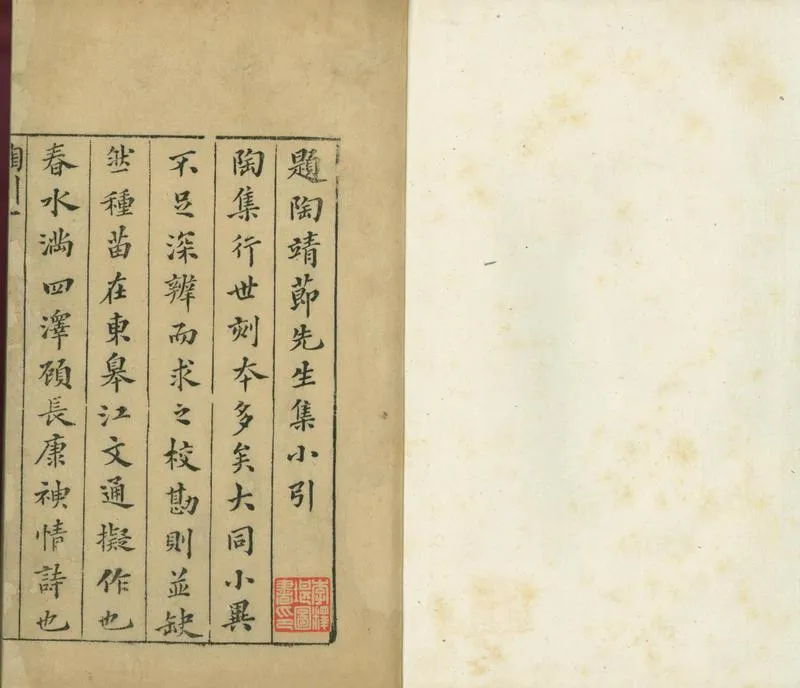 題陶靖節先生集小引
陶集行世刻本多矣大同小異
不足深辨而求之校勘則並缺
然種苗在東皋江文通擬作也
春水满四澤顧長康神情詩也
陶引一